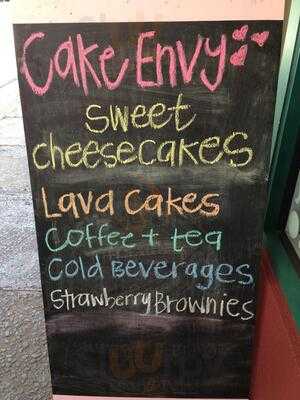 Cake Envy
sweet
cheesecakes
Lava Cakes
Coffee + tea
Cold Beverages
Strawberry Brownies